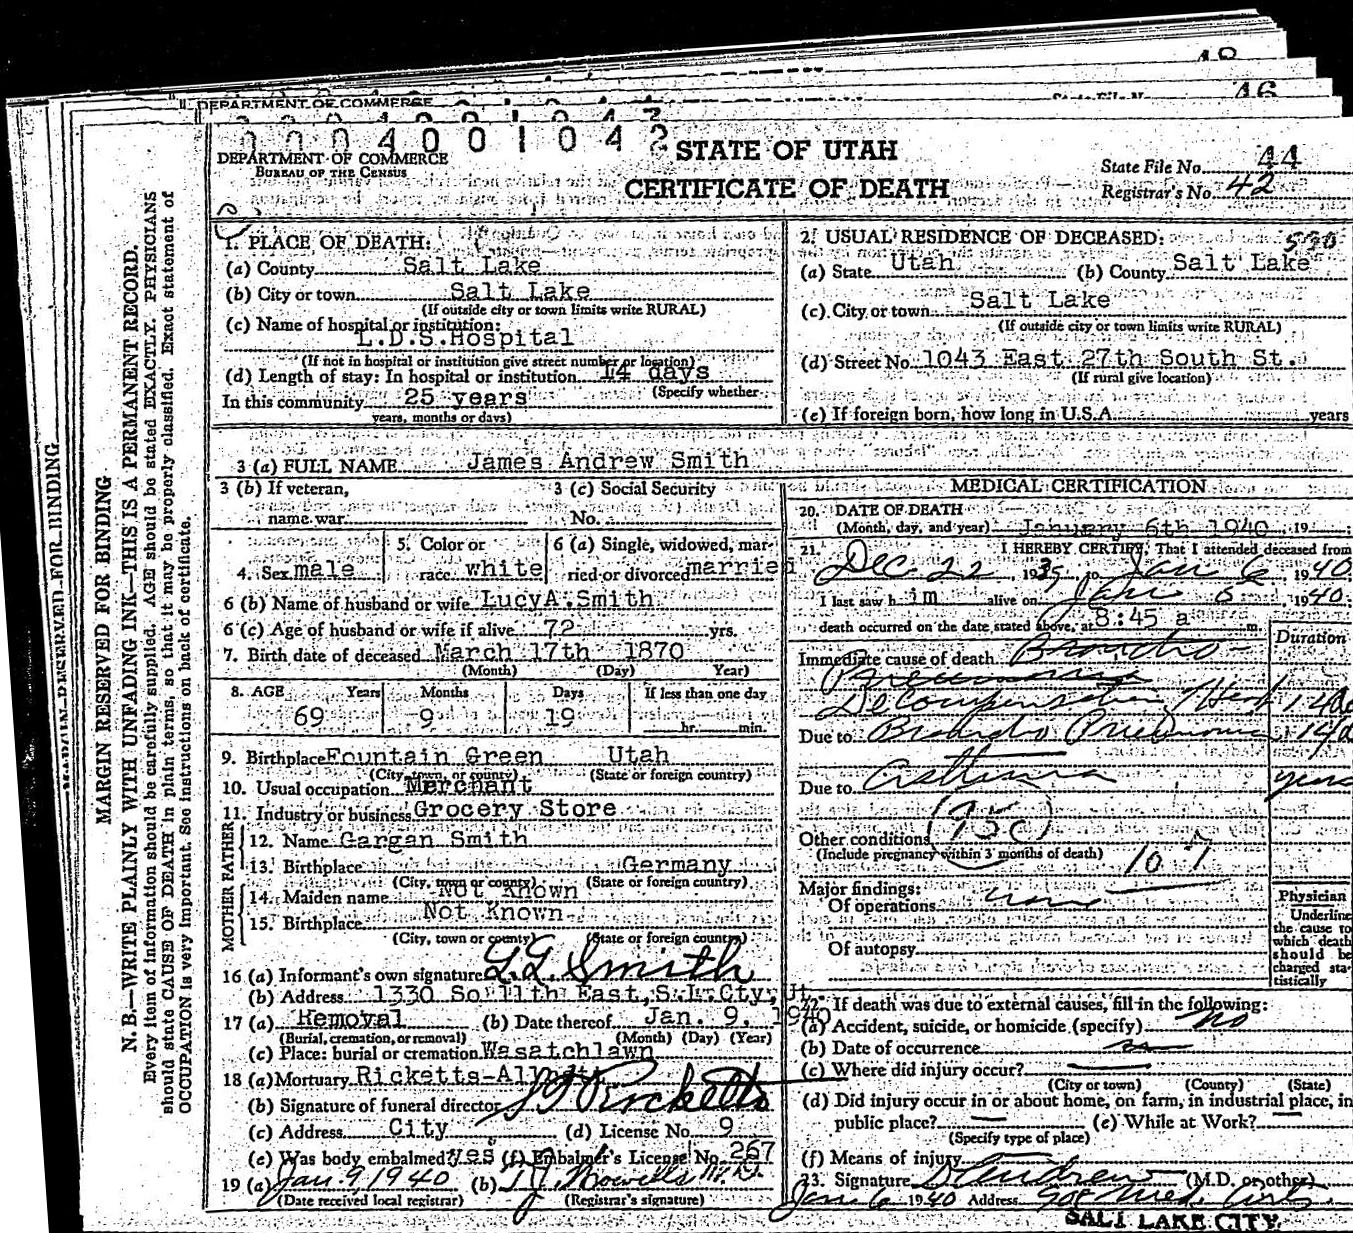 48
46
DEPARTMENT OF COMMERCE
0 0 0 4 0 0 1 0 4 2
DEPARTMENT OF COMMERCE
BUREAU OF THE CENSUS
STATE OF UTAH
CERTIFICATE OF DEATH
State File No. 44
Registrar's No. 42
MARGIN RESERVED FOR BINDING
N. B.—WRITE PLAINLY WITH UNFADING INK—THIS IS A PERMANENT RECORD.
Every item of information should be carefully supplied. AGE should be stated EXACTLY. PHYSICIANS
should state CAUSE OF DEATH in plain terms, so that it may be properly classified. Exact statement of
OCCUPATION is very important. See instructions on back of certificate.
1. PLACE OF DEATH:
(a) County Salt Lake
(b) City or town Salt Lake
(If outside city or town limits write RURAL)
(c) Name of hospital or institution:
L.D.S. Hospital
(If not in hospital or institution give street number or location)
(d) Length of stay: In hospital or institution 14 days
(Specify whether
In this community 25 years
years, months or days)
2. USUAL RESIDENCE OF DECEASED:
(a) State Utah (b) County Salt Lake
(c) City or town Salt Lake
(If outside city or town limits write RURAL)
(d) Street No. 1043 East 27th South St.
(If rural give location)
(e) If foreign born, how long in U.S.A. years
3 (a) FULL NAME James Andrew Smith
3 (b) If veteran,
name war
3 (c) Social Security
No.
4. Sex male
5. Color or
race white
6 (a) Single, widowed, mar-
ried or divorced married
6 (b) Name of husband or wife Lucy A. Smith
6 (c) Age of husband or wife if alive 72 yrs.
7. Birth date of deceased March 17th 1870
(Month) (Day) Year)
8. AGE Years Months Days If less than one day
69 9 19 hr. min.
9. Birthplace Fountain Green Utah
(City, town, or county) (State or foreign country)
10. Usual occupation Merchant
11. Industry or business Grocery Store
FATHER
12. Name Gargan Smith
13. Birthplace Germany
(City, town or county) (State or foreign country)
MOTHER
14. Maiden name Not Known
15. Birthplace Not Known
(City, town or county) (State or foreign country)
16 (a) Informant's own signature L.G. Smith
(b) Address 1330 So 11th East, S.L.Cty, Ut.
17 (a) Removal (b) Date thereof Jan. 9, 1940
(Burial, cremation, or removal) (Month) (Day) (Year)
(c) Place: burial or cremation Wasatchlawn
18 (a) Mortuary Ricketts-
(b) Signature of funeral director Ricketts
(c) Address City (d) License No. 9
(e) Was body embalmed? yes (f) Embalmer's License No. 267
19 (a) Jan 9, 1940 (b)
(Date received local registrar) (Registrar's signature)
MEDICAL CERTIFICATION
20. DATE OF DEATH
(Month, day, and year) January 6th 1940 19
21. I HEREBY CERTIFY, That I attended deceased from
Dec 22, 1939 to Jan 6 1940
I last saw h im alive on Jan 5 1940
death occurred on the date stated above, at 8:45 a m.
Duration
Immediate cause of death Broncho-
Pneumonia
Decompensation Heart 14 da
Due to Broncho Pneumonia 14 d
Due to Asthma years
Other conditions
(Include pregnancy within 3 months of death) 107
Major findings:
Of operations none
Of autopsy
Physician
Underline
the cause to
which death
should be
charged sta-
tistically
22. If death was due to external causes, fill in the following:
(a) Accident, suicide, or homicide (specify) no
(b) Date of occurrence
(c) Where did injury occur?
(City or town) (County) (State)
(d) Did injury occur in or about home, on farm, in industrial place, in
public place? (e) While at Work?
(Specify type of place)
(f) Means of injury
23. Signature (M.D. or other)
Jan 6 1940 Address
SALT LAKE CITY.